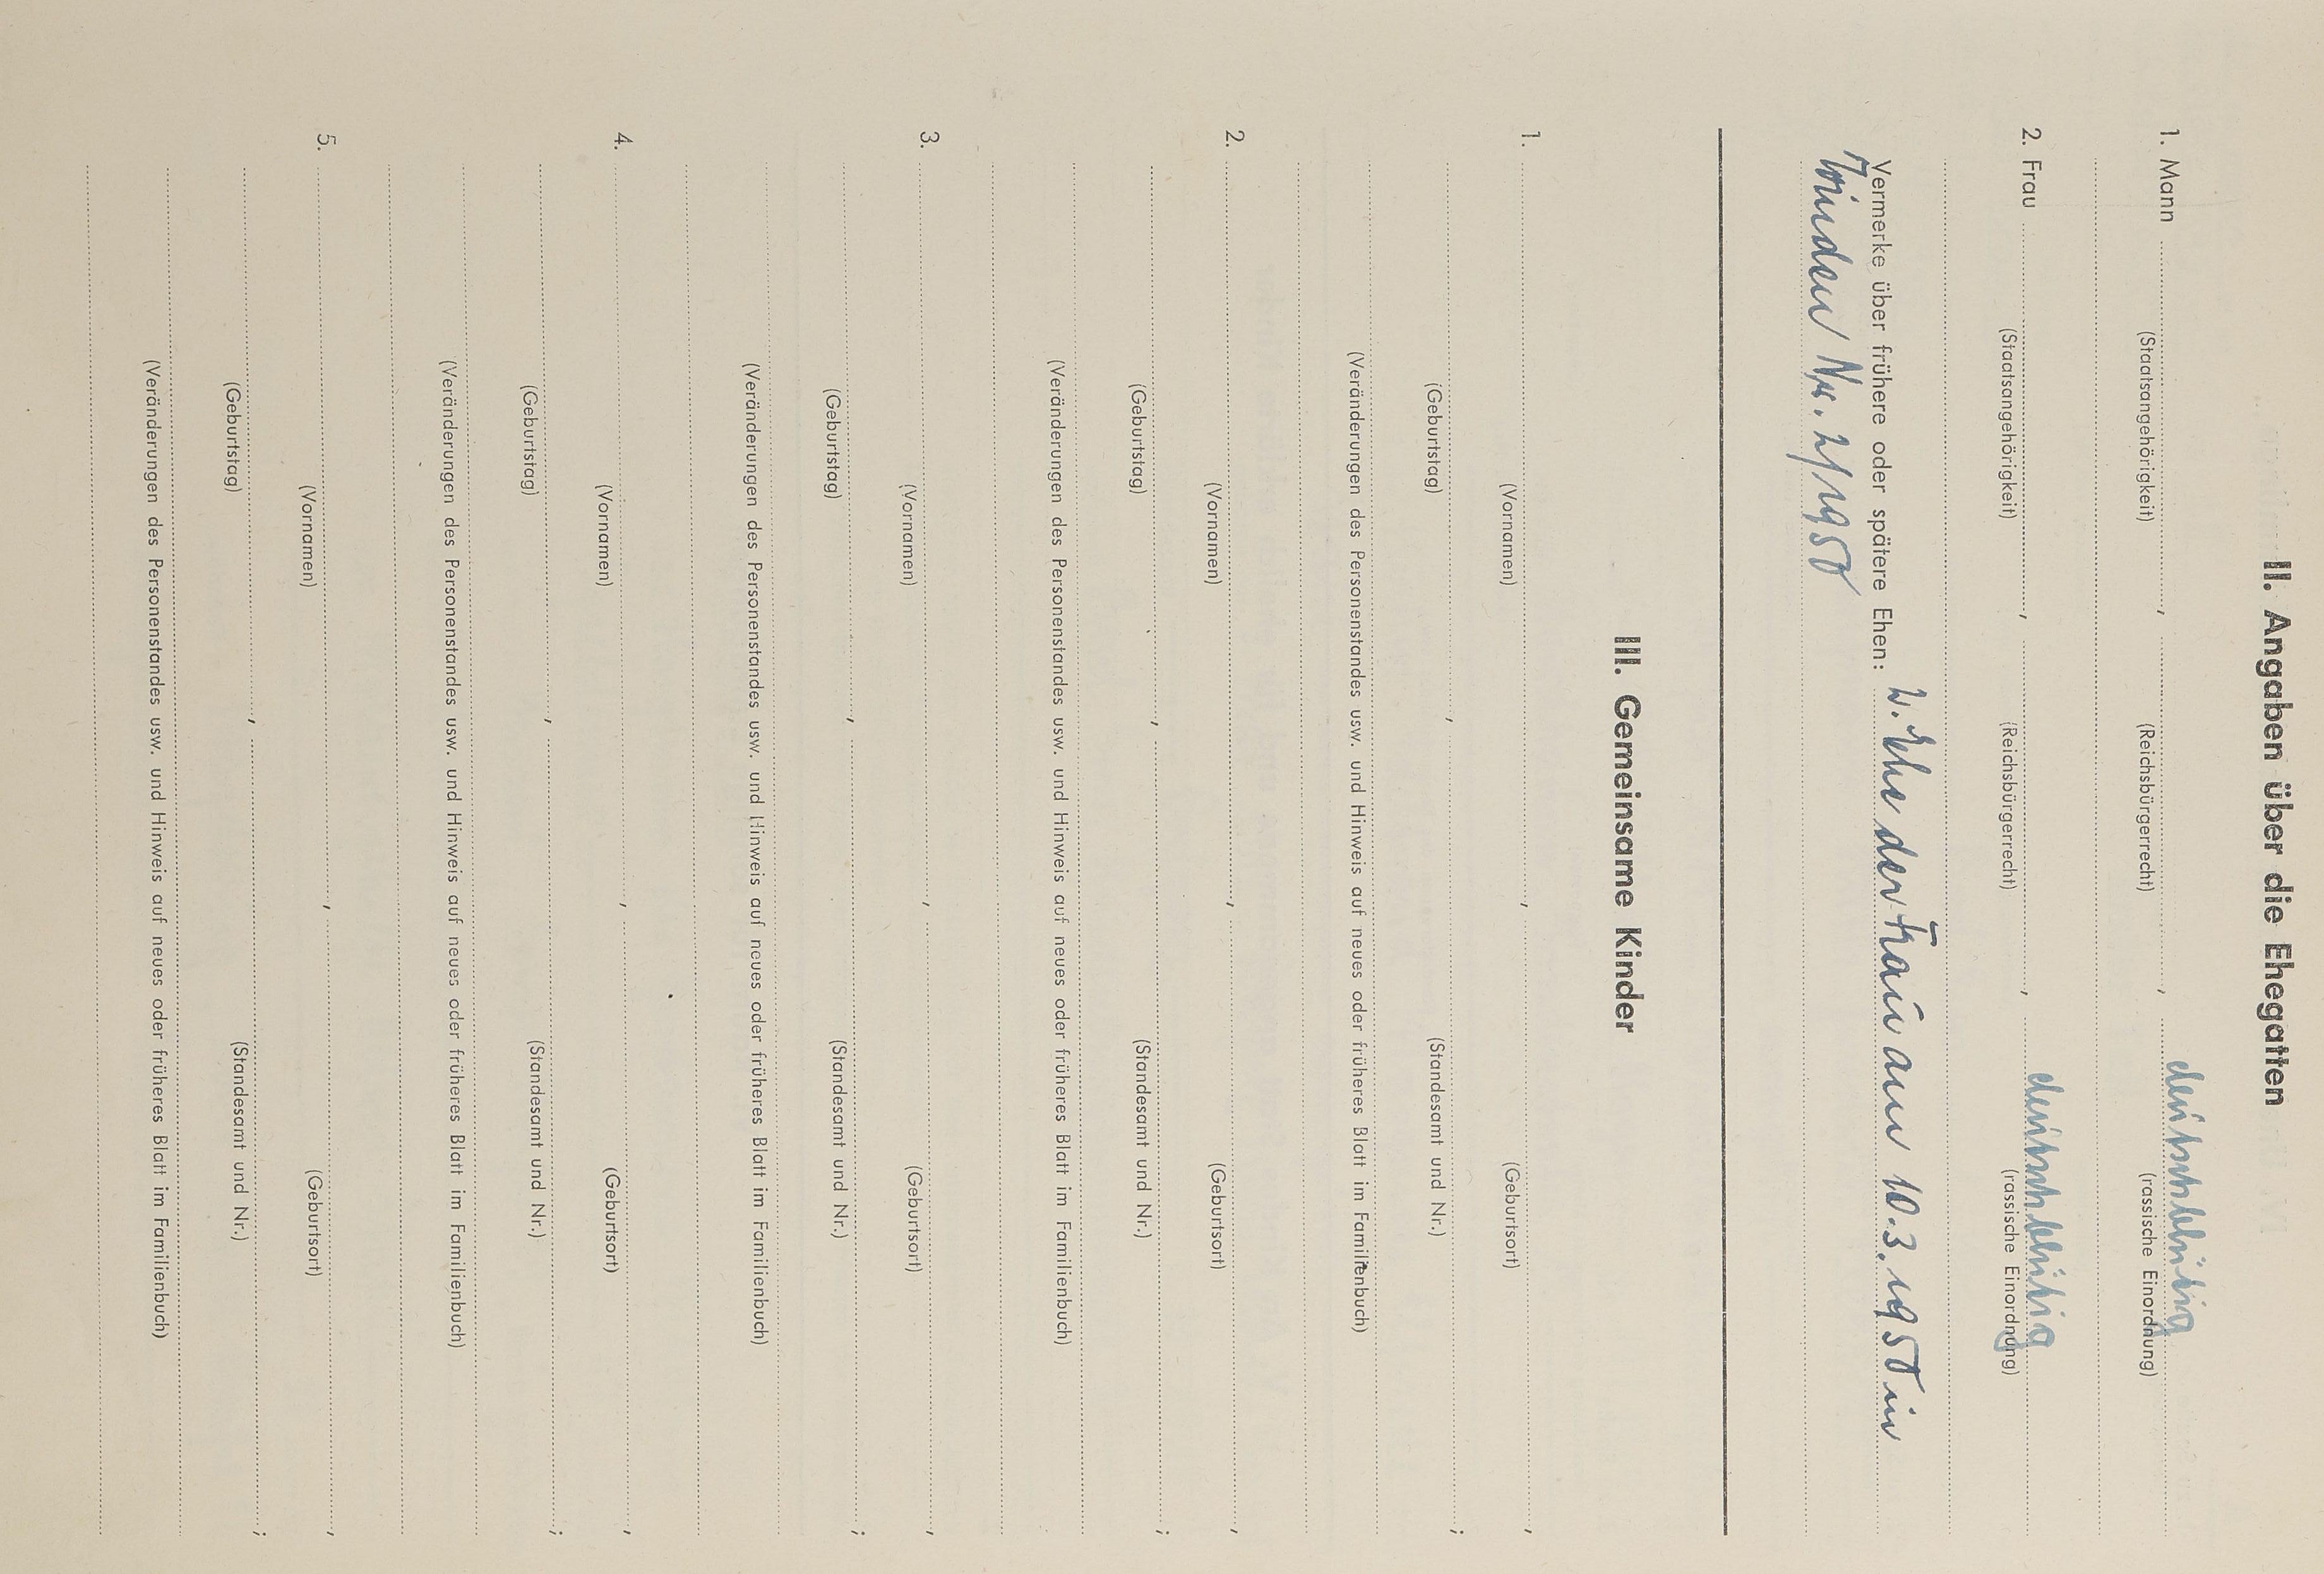 II. Angaben über die Ehegatten
deutschblütig
1. Mann , ,
(Staatsangehörigkeit) (Reichsbürgerrecht) (rassische Einordnung)
deutschblütig
2. Frau , ,
(Staatsangehörigkeit) (Reichsbürgerrecht) (rassische Einordnung)
Vermerke über frühere oder spätere Ehen: 2. Ehe der Frau am 10.3.1950 in
Nr. 2/1950
III. Gemeinsame Kinder
1. , ,
(Vornamen) (Geburtsort)
, ;
(Geburtstag) (Standesamt und Nr.)
(Veränderungen des Personenstandes usw. und Hinweis auf neues oder früheres Blatt im Familienbuch)
2. , ,
(Vornamen) (Geburtsort)
, ;
(Geburtstag) (Standesamt und Nr.)
(Veränderungen des Personenstandes usw. und Hinweis auf neues oder früheres Blatt im Familienbuch)
3. , ,
(Vornamen) (Geburtsort)
, ;
(Geburtstag) (Standesamt und Nr.)
(Veränderungen des Personenstandes usw. und Hinweis auf neues oder früheres Blatt im Familienbuch)
4. , ,
(Vornamen) (Geburtsort)
, ;
(Geburtstag) (Standesamt und Nr.)
(Veränderungen des Personenstandes usw. und Hinweis auf neues oder früheres Blatt im Familienbuch)
5. , ,
(Vornamen) (Geburtsort)
, ;
(Geburtstag) (Standesamt und Nr.)
(Veränderungen des Personenstandes usw. und Hinweis auf neues oder früheres Blatt im Familienbuch)